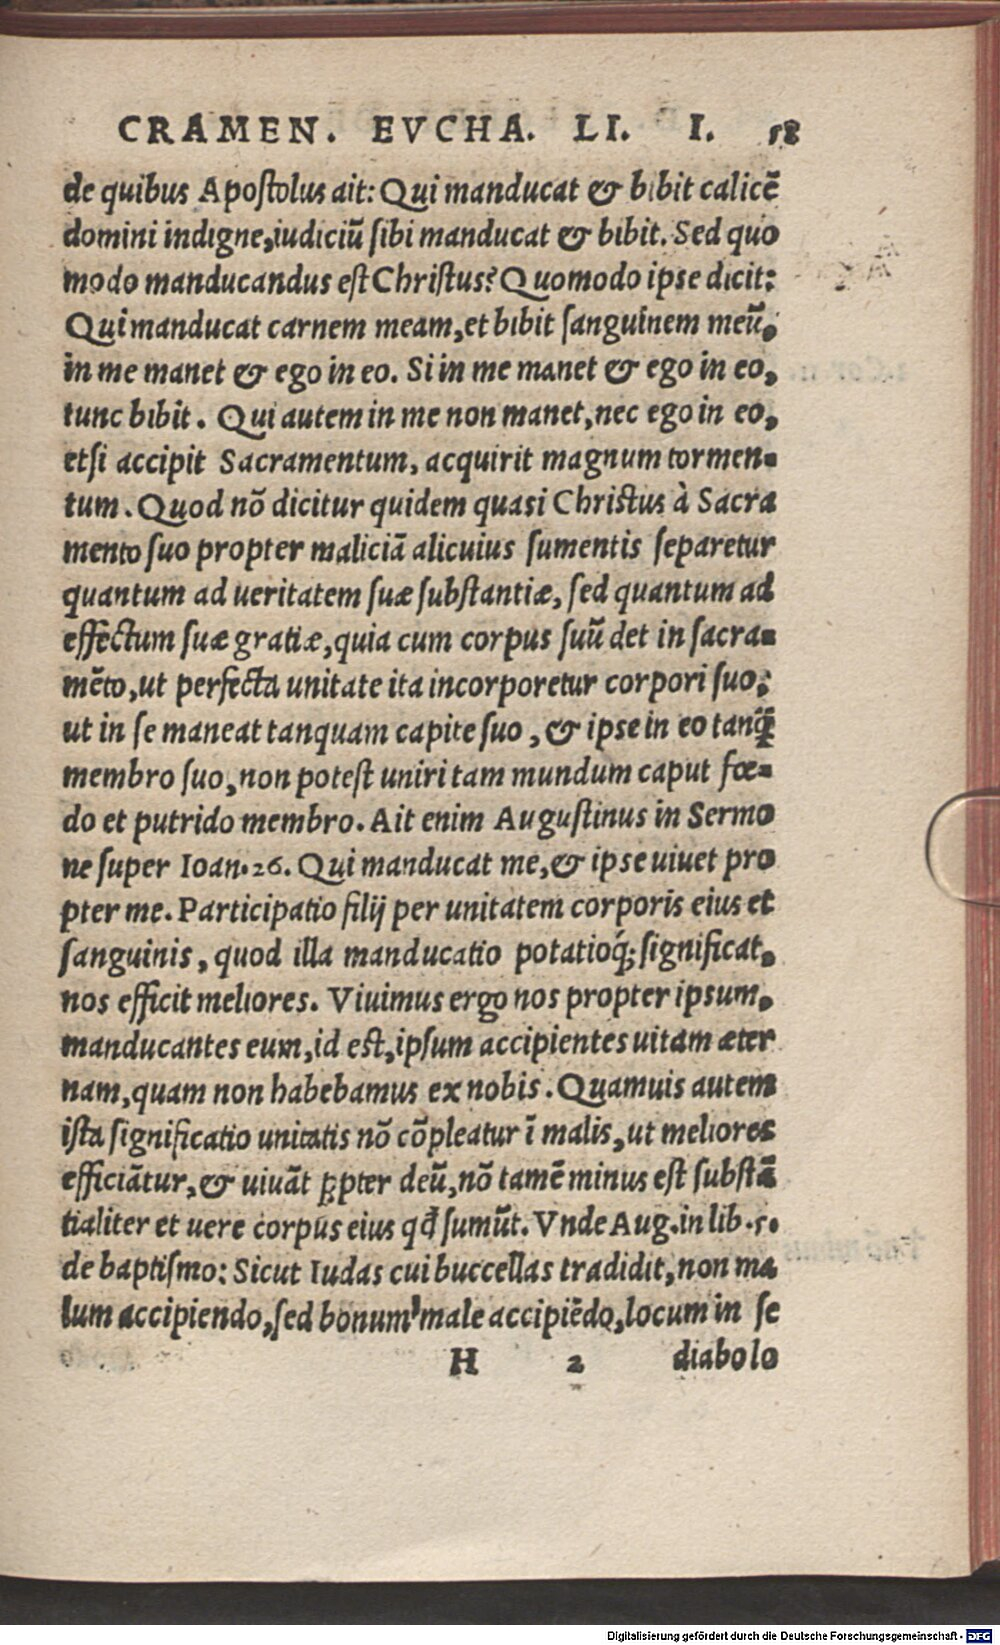 CRAMEN. EVCHA. LI. I. 58
de quibus Apoſtolus ait: Qui manducat & bibit calicē
domini indigne, iudiciū ſibi manducat & bibit. Sed quo
modo manducandus eſt Chriſtus? Quomodo ipse dicit:
Qui manducat carnem meam, et bibit ſanguinem meū,
in me manet & ego in eo. Si in me manet & ego in eo,
tunc bibit. Qui autem in me non manet, nec ego in eo,
etſi accipit Sacramentum, acquirit magnum tormen-
tum. Quod nō dicitur quidem quasi Chriſtus à Sacra
mento ſuo propter maliciā alicuius ſumentis ſeparetur
quantum ad ueritatem ſuæ ſubſtantiæ, ſed quantum ad
effectum ſuæ gratiæ, quia cum corpus ſuū det in ſacra-
mēto, ut perfecta unitate ita incorporetur corpori ſuo,
ut in ſe maneat tanquam capite ſuo, & ipse in eo tanq̄
membro ſuo, non poteſt uniri tam mundum caput fœ-
do et putrido membro. Ait enim Auguſtinus in Sermo
ne ſuper Ioan. 26. Qui manducat me, & ipse uiuet pro
pter me. Participatio filij per unitatem corporis eius et
ſanguinis, quod illa manducatio potatioq́; ſignificat,
nos efficit meliores. Viuimus ergo nos propter ipsum,
manducantes eum, id eſt, ipſum accipientes uitam æter
nam, quam non habebamus ex nobis. Quamuis autem
iſta ſignificatio unitatis nō cōpleatur ī malis, ut meliores
efficiātur, & uiuāt ꝓpter deū, nō tamē minus eſt ſubſtā
tialiter et uere corpus eius qđ ſumūt. Vnde Aug. in lib. 5.
de baptiſmo: Sicut Iudas cui buccellas tradidit, non ma
lum accipiendo, ſed bonum male accipiēdo, locum in ſe
H 2 diabolo
Digitalisierung gefördert durch die Deutsche Forschungsgemeinschaft - DFG